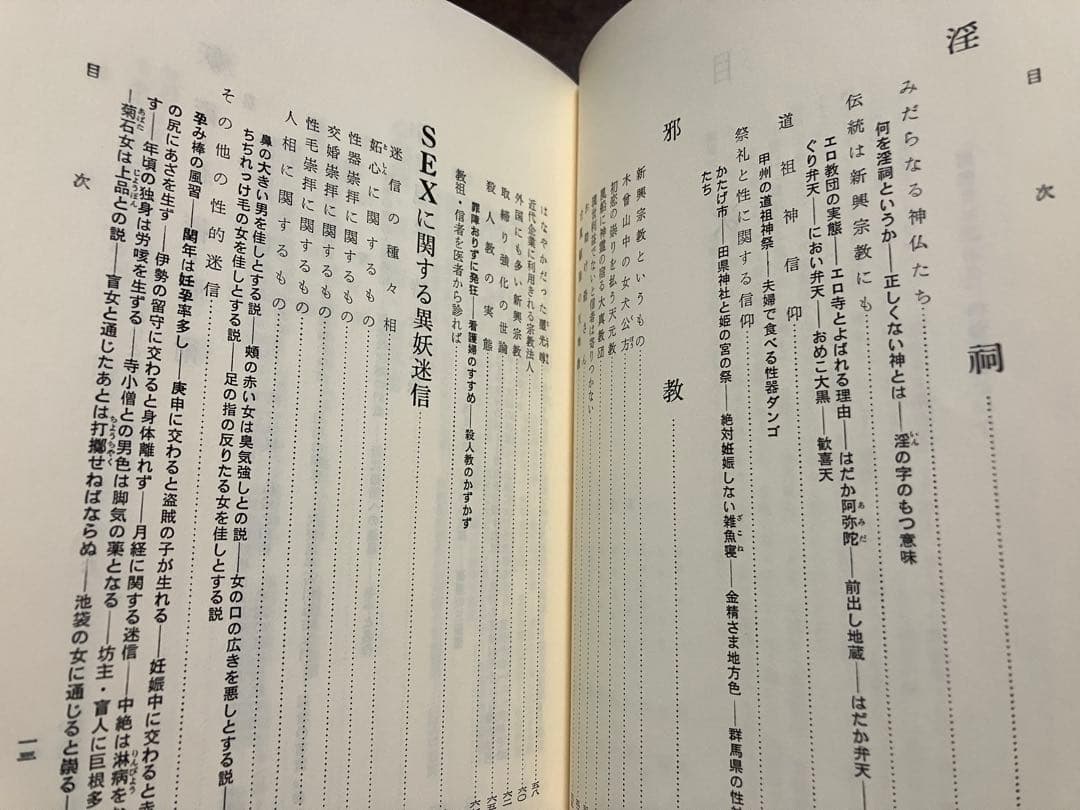 目次
淫祠
みだらなる神仏たち
何を淫祠というか――正しくない神とは――淫の字のもつ意味
伝統は新興宗教にも
エロ教団の実態――エロ寺とよばれる理由――はだか阿弥陀――前出し地蔵――はだか弁天――
ぐり弁天――におい弁天――おめこ大黒――歓喜天
道祖神信仰
甲州の道祖神祭――夫婦で食べる性器ダンゴ
祭礼と性に関する信仰
かたげ市――田県神社と姫の宮の祭――絶対妊娠しない雑魚寝――金精さま地方色――群馬県の性
たち
邪教
新興宗教というもの
木曾山中の女犬公方
初恋の祟りを払う天元教
現世利益でないと信者は寄りつかない
はなやかだった璽光尊
近代企業に利用される宗教法人
外国にも多い新興宗教
取締り強化の世論
殺人教の実態
罪障おりずに発狂――看護婦のすすめ――殺人教のかずかず
教祖・信者を医者から診れば
SEXに関する異妖迷信
迷信の種々相
妬心に関するもの
性器崇拝に関するもの
交婚崇拝に関するもの
性毛崇拝に関するもの
人相に関するもの
鼻の大きい男を佳しとする説――頬の赤い女は臭気強しとの説――女の口の広きを悪しとする説――
ちぢれっけ毛の女を佳しとする説――足の指の反りたる女を佳しとする説
その他の性的迷信
孕み棒の風習――閏年は妊孕率多し――庚申に交わると盗賊の子が生れる――妊娠中に交わると
の尻にあざを生ず――伊勢の留守に交わると身体離れず――月経に関する迷信――中絶は淋病を
す――年頃の独身は労咳を生ずる――寺小僧との男色は脚気の薬となる――坊主・盲人に巨根多
――菊石女は上品との説――盲女と通じたあとは打擲せねばならぬ――池袋の女に通じると祟る――
目次
一三